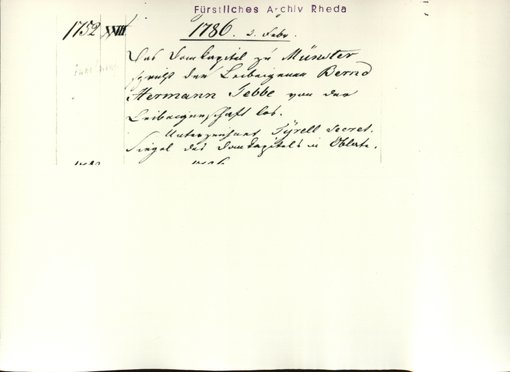 Fürstliches Archiv Rheda
1752 XVIII 1786. 2. Febr.
Das Domkapitel zu Münster
spricht den Leibeigenen Bernd
Hermann Tebbe von der
Leibeigenschaft los.
Unterzeichner Tÿrell Secret.
Siegel des Domkapitels in Oblate.